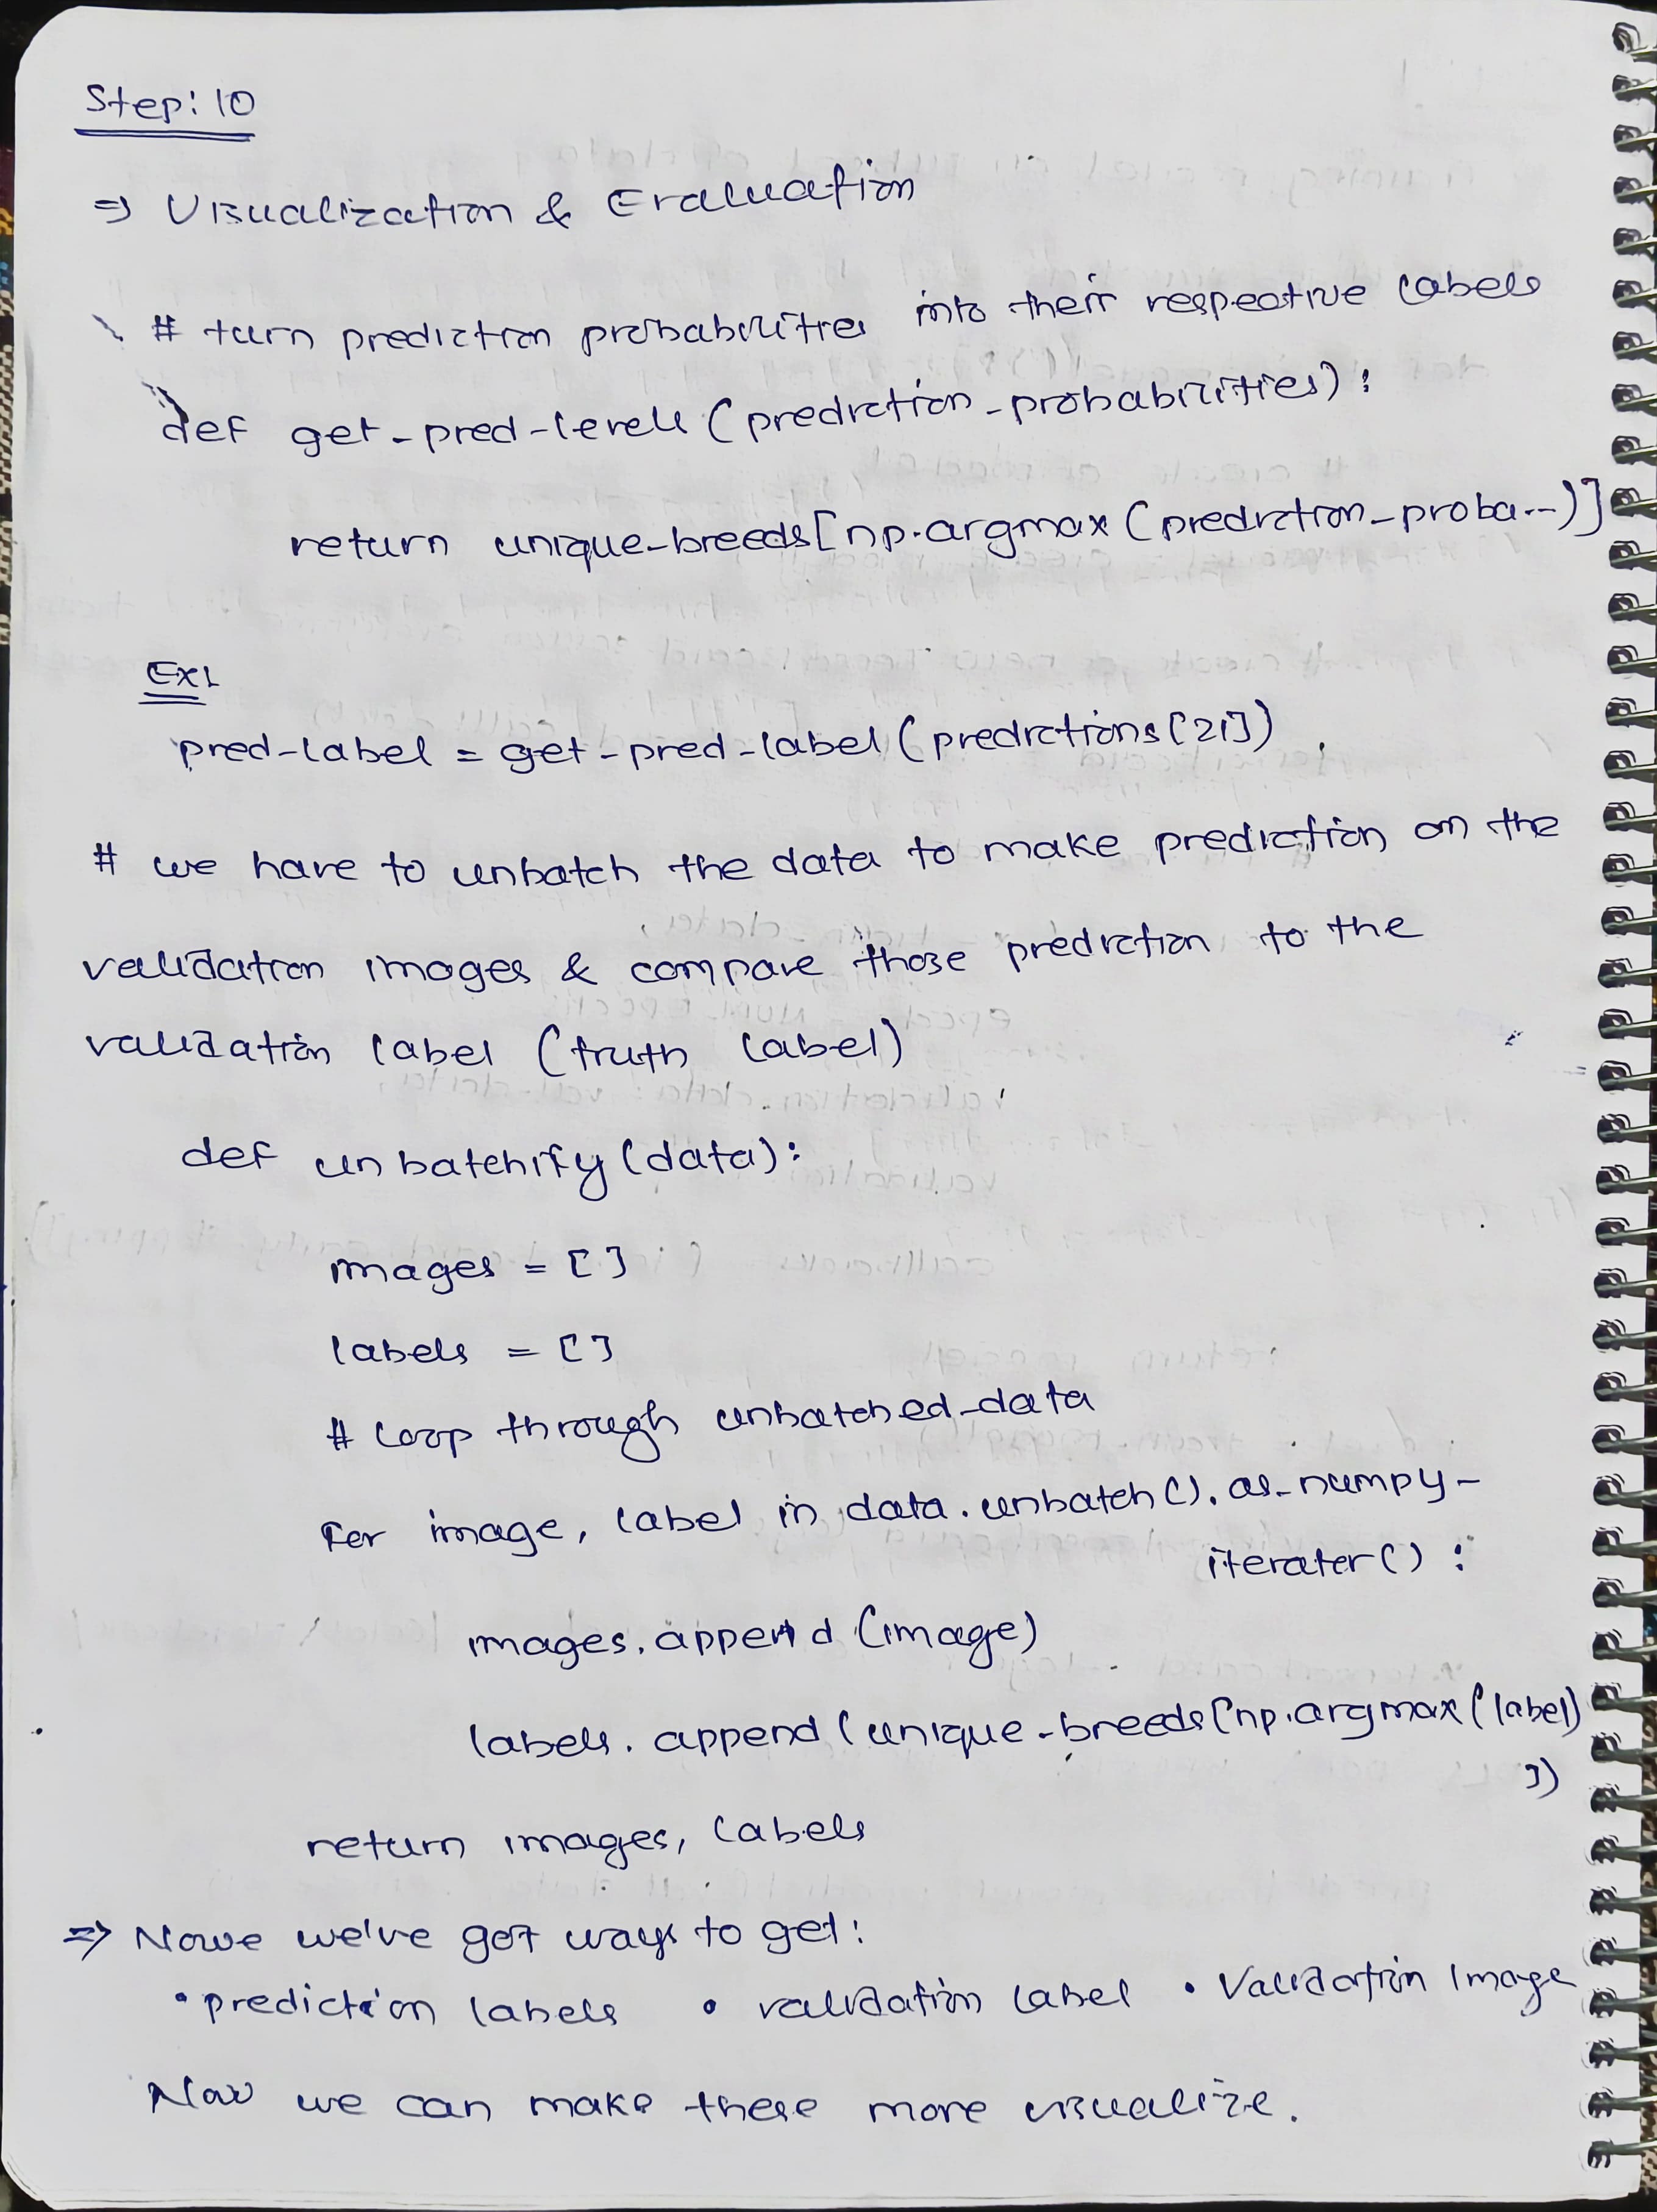 Step: 10
⇒ Visualization & Evaluation
# turn prediction probabilities into their respective labels
def get-pred-levels (prediction-probabilities):
return unique-breeds[np.argmax (prediction-proba--)]
Ex:
pred-label = get-pred-label (predictions[21])
# we have to unbatch the data to make prediction on the
validation images & compare those prediction to the
validation label (truth label)
def unbatchify (data):
images = []
labels = []
# loop through unbatched-data
for image, label in data.unbatch().as-numpy-
iterater():
images.append (image)
labels.append (unique-breeds[np.argmax (label)
])
return images, labels
⇒ Nowe we've got ways to get:
• prediction labels • validation label • Validation Image
Now we can make these more visualize.